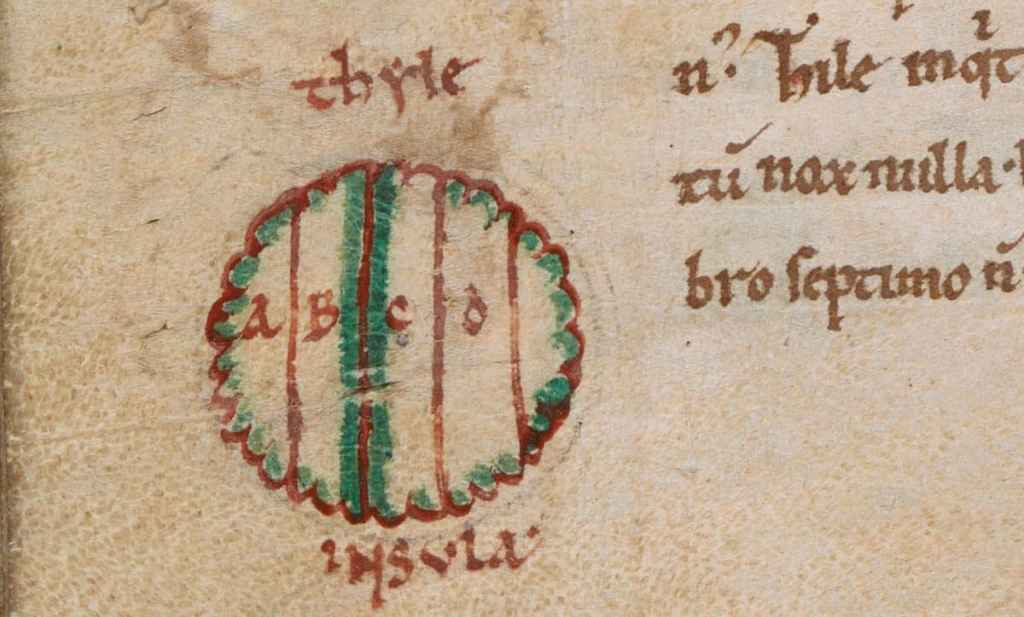 thyle
A B C D
insula
n̄. hile inq̇t
tū nox nulla.
bro septimo n̄